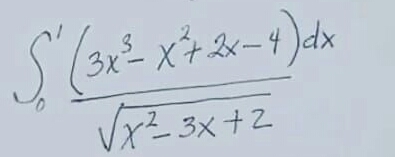 ∫₀¹ (3x³ - x² + 2x - 4) dx
√(x² - 3x + 2)